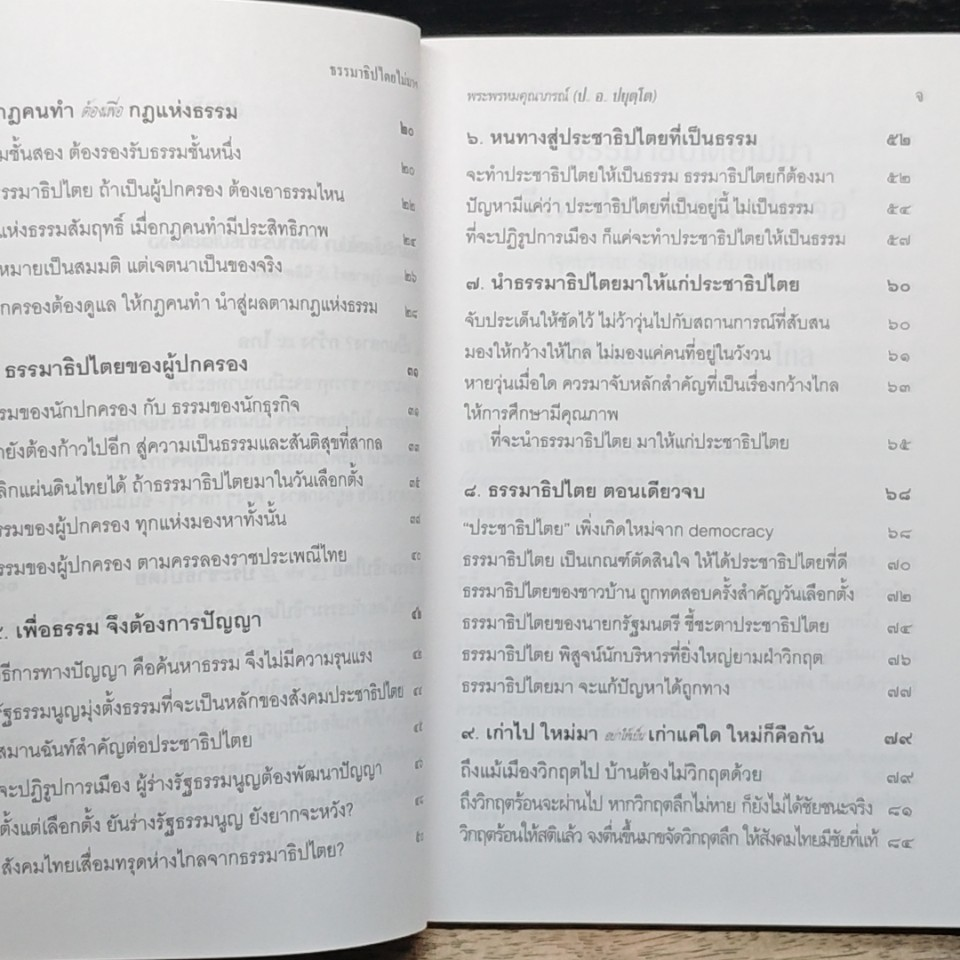 ธรรมาธิปไตยไม่มา
กฎคนทำ ต้องเพื่อ กฎแห่งธรรม ๒๐
ชั้นสอง ต้องรองรับธรรมชั้นหนึ่ง ๒๐
ธรรมาธิปไตย ถ้าเป็นผู้ปกครอง ต้องเอาธรรมไหน ๒๒
แห่งธรรมสัมฤทธิ์ เมื่อกฎคนทำมีประสิทธิภาพ ๒๔
หมายเป็นสมมติ แต่เจตนาเป็นของจริง ๒๖
กครองต้องดูแล ให้กฎคนทำ นำสู่ผลตามกฎแห่งธรรม ๒๘
ธรรมาธิปไตยของผู้ปกครอง ๓๑
รมของนักปกครอง กับ ธรรมของนักธุรกิจ ๓๑
ยังต้องก้าวไปอีก สู่ความเป็นธรรมและสันติสุขที่สากล ๓๓
ลิกแผ่นดินไทยได้ ถ้าธรรมาธิปไตยมาในวันเลือกตั้ง ๓๕
รรมของผู้ปกครอง ทุกแห่งมองหาทั้งนั้น
รรมของผู้ปกครอง ตามครรลองราชประเพณีไทย
เพื่อธรรม จึงต้องการปัญญา
ธีการทางปัญญา คือค้นหาธรรม จึงไม่มีความรุนแรง
รัฐธรรมนูญมุ่งตั้งธรรมที่จะเป็นหลักของสังคมประชาธิปไตย
สมานฉันท์สำคัญต่อประชาธิปไตย
จะปฏิรูปการเมือง ผู้ร่างรัฐธรรมนูญต้องพัฒนาปัญญา
ตั้งแต่เลือกตั้ง ยันร่างรัฐธรรมนูญ ยังยากจะหวัง?
สังคมไทยเสื่อมทรุดห่างไกลจากธรรมาธิปไตย?
พระพรหมคุณาภรณ์ (ป. อ. ปยุตฺโต) จ
๖. หนทางสู่ประชาธิปไตยที่เป็นธรรม ๕๒
จะทำประชาธิปไตยให้เป็นธรรม ธรรมาธิปไตยก็ต้องมา ๕๒
ปัญหามีแค่ว่า ประชาธิปไตยที่เป็นอยู่นี้ ไม่เป็นธรรม ๕๔
ที่จะปฏิรูปการเมือง ก็แค่จะทำประชาธิปไตยให้เป็นธรรม ๕๗
๗. นำธรรมาธิปไตยมาให้แก่ประชาธิปไตย ๖๐
จับประเด็นให้ชัดไว้ ไม่ว้าวุ่นไปกับสถานการณ์ที่สับสน ๖๐
มองให้กว้างให้ไกล ไม่มองแค่คนที่อยู่ในวังวน ๖๑
หายวุ่นเมื่อใด ควรมาจับหลักสำคัญที่เป็นเรื่องกว้างไกล ๖๓
ให้การศึกษามีคุณภาพ
ที่จะนำธรรมาธิปไตย มาให้แก่ประชาธิปไตย ๖๕
๘. ธรรมาธิปไตย ตอนเดียวจบ ๖๘
“ประชาธิปไตย” เพิ่งเกิดใหม่จาก democracy ๖๘
ธรรมาธิปไตย เป็นเกณฑ์ตัดสินใจ ให้ได้ประชาธิปไตยที่ดี ๗๐
ธรรมาธิปไตยของชาวบ้าน ถูกทดสอบครั้งสำคัญวันเลือกตั้ง ๗๒
ธรรมาธิปไตยของนายกรัฐมนตรี ชี้ชะตาประชาธิปไตย ๗๔
ธรรมาธิปไตย พิสูจน์นักบริหารที่ยิ่งใหญ่ยามฝ่าวิกฤต ๗๖
ธรรมาธิปไตยมา จะแก้ปัญหาได้ถูกทาง ๗๗
๙. เก่าไป ใหม่มา อย่าให้เป็น เก่าแค่ใด ใหม่ก็คือกัน ๗๙
ถึงแม้เมืองวิกฤตไป บ้านต้องไม่วิกฤตด้วย ๗๙
ถึงวิกฤตร้อนจะผ่านไป หากวิกฤตลึกไม่หาย ก็ยังไม่ได้ชัยชนะจริง ๘๑
วิกฤตร้อนให้สติแล้ว จงตื่นขึ้นมาขจัดวิกฤตลึก ให้สังคมไทยมีชัยที่แท้ ๘๔